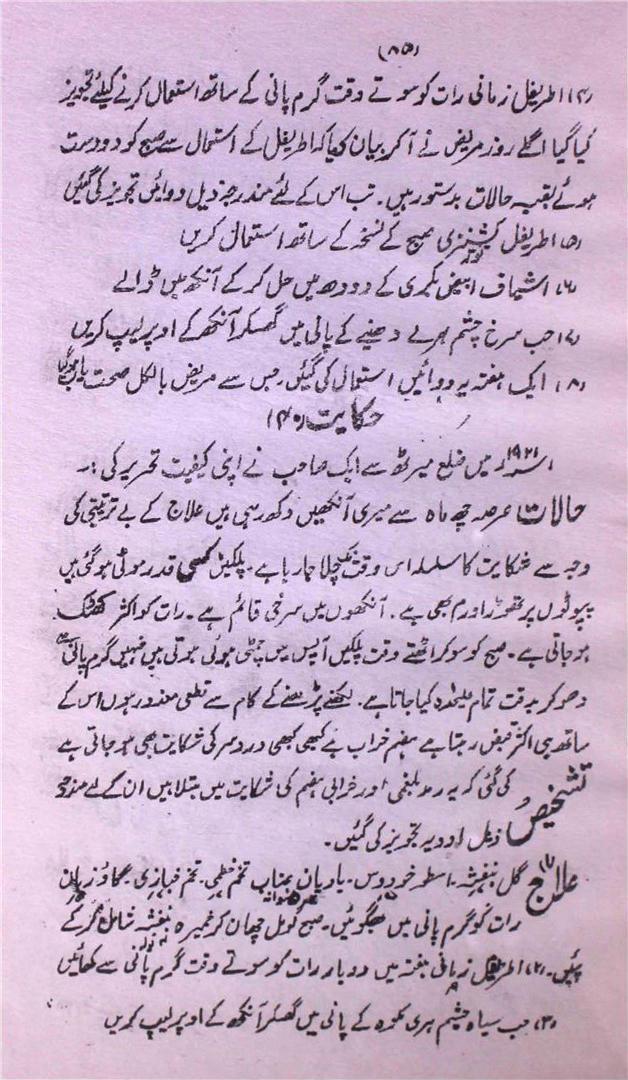 (۸۵)
(۴) اطریفل زمانی رات کو سوتے وقت گرم پانی کے ساتھ استعمال کرنے کیلئے تجویز
کیا گیا اگلے روز مریض نے آکر بیان کیا کہ اطریفل کے استعمال سے صبح کو دو دست
ہوئے بقیہ حالات بدستور ہیں۔ تب اس کے لئے مندرجہ ذیل دوائیں تجویز کی گئیں
(۵) اطریفل کشنیزی صبح کے نسخہ کے ساتھ استعمال کریں
(۶) اشیاف ابیض بکری کے دودھ میں حل کر کے آنکھ میں ڈالے
(۷) حب سرخ چشم ہرے دھنیے کے پانی میں گھسکر آنکھ کے اوپر لیپ کریں
(۸) ایک ہفتہ یہ دوائیں استعمال کی گئیں جس سے مریض بالکل صحت یاب ہوگیا
حکایت (۴۰)
۱۹۲۱ء میں ضلع میرٹھ سے ایک صاحب نے اپنی کیفیت تحریر کی :۔
حالات عرصہ چھ ماہ سے میری آنکھیں دکھ رہی ہیں علاج کے بے ترتیبی کی
وجہ سے شکایت کا سلسلہ اس وقت تک چلا جا رہا ہے۔ پلکیں کسی قدر موٹی ہوگئی ہیں
پپوٹوں پر تھوڑا ورم بھی ہے۔ آنکھوں میں سرخی قائم ہے۔ رات کو اکثر کھٹک
ہو جاتی ہے۔ صبح کو سو کر اٹھتے وقت پلکیں آپس میں چمٹی ہوئی ہوتی ہیں جنہیں گرم پانی سے
دھو کر بدقت تمام علیحدہ کیا جاتا ہے۔ لکھنے پڑھنے کے کام سے قطعی معذور ہوں اس کے
ساتھ ہی اکثر قبض رہتا ہے ہضم خراب ہے کبھی کبھی درد سر کی شکایت بھی ہو جاتی ہے
تشخیص کی گئی کہ یہ رمد بلغمی اور خرابی ہضم کی شکایت میں مبتلا ہیں ان کے لئے مندرجہ
ذیل ادویہ تجویز کی گئیں۔
علاج (۱) گل بنفشہ۔ اسطوخودوس۔ بادیان عناب تخم خطمی۔ تخم خبازی۔ گاؤ زبان
رات کو گرم پانی میں بھگوئیں۔ صبح کو مل چھان کر خمیرہ بنفشہ شامل کر کے
پئیں۔ (۲) اطریفل زمانی ہفتہ میں دو بار رات کو سوتے وقت گرم پانی سے کھائیں
(۳) حب سیاہ چشم ہری مکوہ کے پانی میں گھسکر آنکھ کے اوپر لیپ کریں